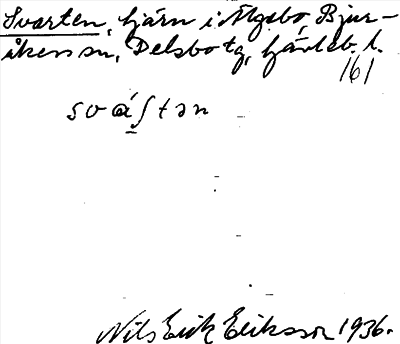 Svarten, tjärn i Älgsbo, Bjur-
åkers sn, Delsbo tg, Gävleb. l.
161
svа́ʃtən
Nils Erik Eriksson 1936.